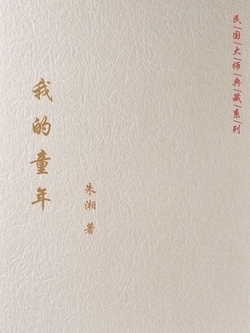 民/国/大/师/典/藏/系/列
我的童年
朱湘 著